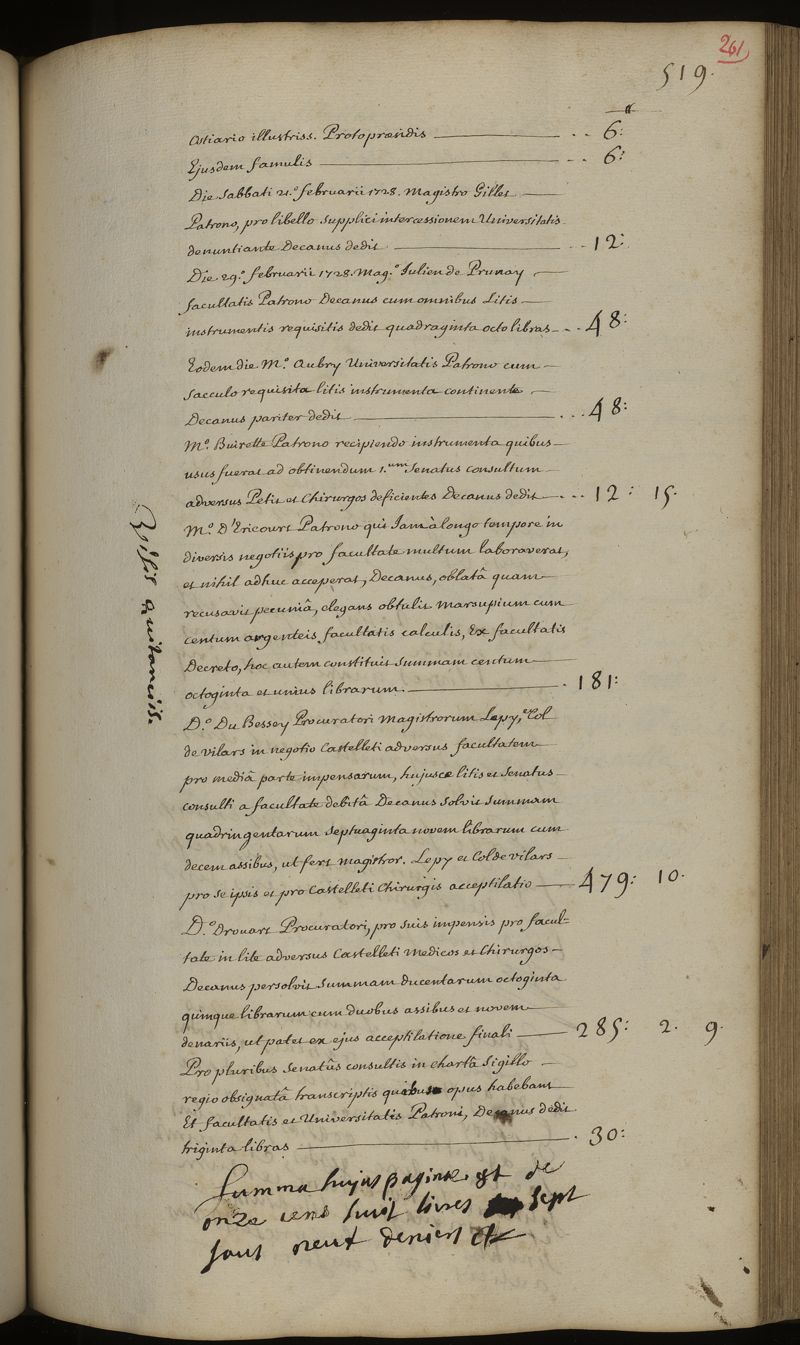 261
519.
Ostiario illustriss. Protopraesidis — .. 6:
Ejusdem famulis — .. 6:
Die Sabbati 21.° februarii 1728. Magistro Gilles —
Patrono, pro libello supplici intercessionem Universitatis
denuntiante Decanus dedit — .. 12:
Die 29.° februarii 1728. Mag.° Julien de Prunay —
facultatis Patrono Decanus cum omnibus Litis —
instrumentis requisitis dedit quadraginta octo libras - .. 48:
Eodem die M.° Aubry Universitatis Patrono cum —
sacculo requisita litis instrumenta continente —
Decanus pariter dedit — ... 48:
M.° Buirette Patrono recipiendo instrumenta quibus —
usus fuerat ad obtinendum 1.um Senatus consultum —
adversus Petit et Chirurgos deficientes Decanus dedit — .. 12: 15.
M.° D'Ericourt Patrono qui Jam à longo tempore in
diversis negotiis pro facultate multum laboraverat,
et nihil adhuc acceperat, Decanus, oblatâ quam —
recusavit pecuniâ, elegans obtulit marsupium cum
centum argenteis facultatis calculis, Ex facultatis
Decreto, hoc autem constituit summam centum —
octoginta et unius librarum. — . 181:
Visis quitanciis.
D.° Du Bessey Procuratori Magistrorum Lepy, et Col
de vilars in negotio Castelleti adversus facultatem —
pro mediâ parte impensarum, hujusce litis et Senatus —
consulti a facultate debitâ Decanus solvit summam
quadringentarum septuaginta novem librarum cum
decem assibus, ut fert magistror. Lepy et Coldevilars —
pro se ipsis et pro Castelleti Chirurgis acceptilatio — 479: 10.
D.° Drouart Procuratori, pro suis impensis pro facul=
tate in lite adversus Castelleti Medicos et Chirurgos —
Decanus persolvit summam ducentarum octoginta
quinque librarum cum duobus assibus et novem —
denariis, ut patet ex ejus acceptilatione finali — 285: 2. 9.
Pro pluribus Senatûs consultis in chartâ Sigillo —
regio obsignatâ transcriptis quibus opus habebant —
Et facultatis et Universitatis Patroni, Decanus dedit
triginta libras — . 30:
Summa hujus paginae est de
onze cens huit livres sept
sous neuf deniers